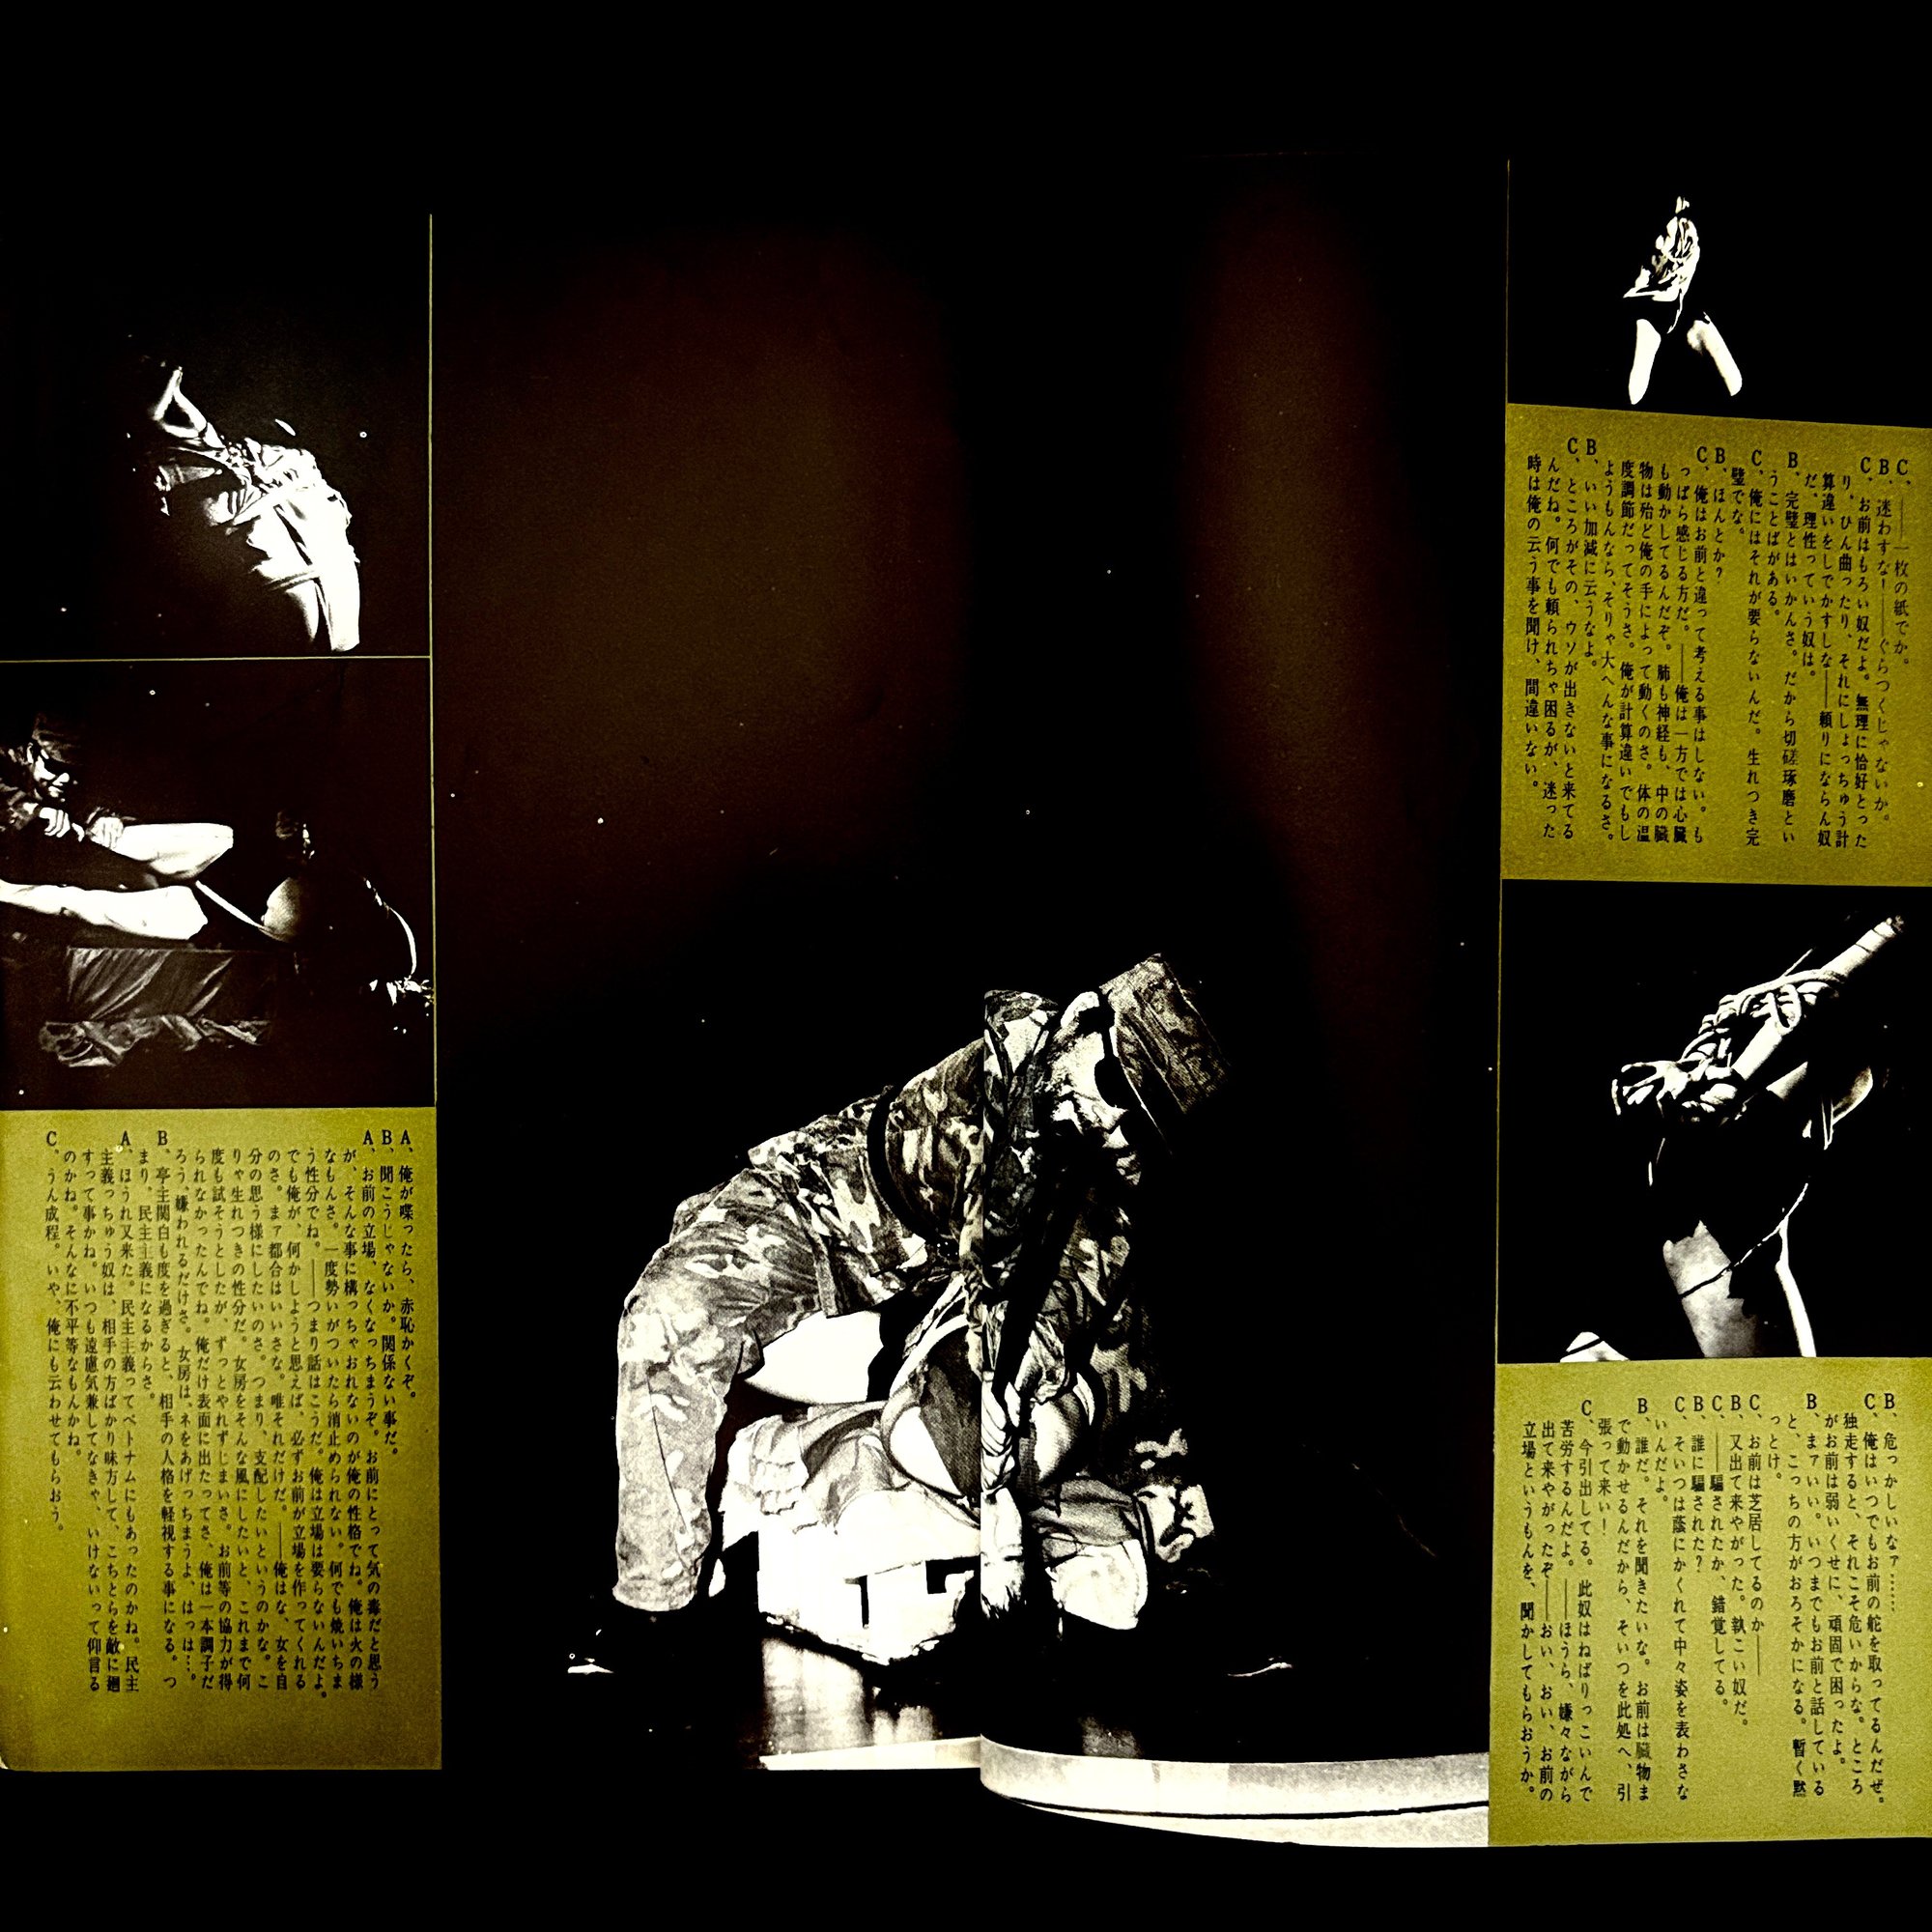 C、――一枚の紙でか。
B、迷わすな!――ぐらつくじゃないか。
C、お前はもろい奴だよ。無理に恰好とった
り、ひん曲ったり、それにしょっちゅう計
算違いをしでかすしな――頼りにならん奴
だ、理性っていう奴は。
B、完璧とはいかんさ。だから切磋琢磨とい
うことばがある。
C、俺にはそれが要らないんだ。生れつき完
璧でな。
B、ほんとか?
C、俺はお前と違って考える事はしない。も
っぱら感じる方だ。――俺は一方では心臓
も動かしてるんだぞ。肺も神経も、中の臓
物は殆ど俺の手によって動くのさ。体の温
度調節だってそうさ。俺が計算違いでもし
ようもんなら、そりゃ大へんな事になるさ。
B、いい加減に云うなよ。
C、ところがその、ウソが出きないと来てる
んだね。何でも頼られちゃ困るが、迷った
時は俺の云う事を聞け、間違いない。
B、危っかしいなァ……
C、俺はいつでもお前の舵を取ってるんだぜ。
独走すると、それこそ危いからな。ところ
がお前は弱いくせに、頑固で困ったよ。
B、まァいい。いつまでもお前と話している
と、こっちの方がおろそかになる。暫く黙
っとけ。
C、お前は芝居してるのか――
B、又出て来やがった。執こい奴だ。
C、――騙されたか、錯覚してる。
B、誰に騙された?
C、そいつは蔭にかくれて中々姿を表わさな
いんだよ。
B、誰だ。それを聞きたいな。お前は臓物ま
で動かせるんだから、そいつを此処へ、引
張って来い!
C、今引出してる。此奴はねばりっこいんで
苦労するんだよ。――ほうら、嫌々ながら
出て来やがったぞ――おい、おい、お前の
立場というもんを、聞かしてもらおうか。
A、俺が喋ったら、赤恥かくぞ。
B、聞こうじゃないか。関係ない事だ。
A、お前の立場、なくなっちまうぞ。お前にとって気の毒だと思う
が、そんな事に構っちゃおれないのが俺の性格でね。俺は火の様
なもんさ。一度勢いがついたら消止められない。何でも焼いちま
う性分でね。――つまり話はこうだ。俺は立場は要らないんだよ。
でも俺が、何かしようと思えば、必ずお前が立場を作ってくれる
のさ。まァ都合はいいさな。唯それだけだ。――俺はな、女を自
分の思う様にしたいのさ。つまり、支配したいというのかな。こ
りゃ生れつきの性分だ。女房をそんな風にしたいと、これまで何
度も試そうとしたが、ずっとやれずじまいさ。お前等の協力が得
られなかったんでね。俺だけ表面に出たってさ、俺は一本調子だ
ろう、嫌われるだけさ。女房は、ネをあげっちまうよ、はっは…。
B、亭主関白も度を過ぎると、相手の人格を軽視する事になる。つ
まり、民主主義になるからさ。
A、ほうれ又来た。民主主義ってベトナムにもあったのかね。民主
主義っちゅう奴は、相手の方ばかり味方して、こちとらを敵に廻
すって事かね。いつも遠慮気兼してなきゃ、いけないって仰言る
のかね。そんなに不平等なもんかね。
C、うん成程。いや、俺にも云わせてもらおう。